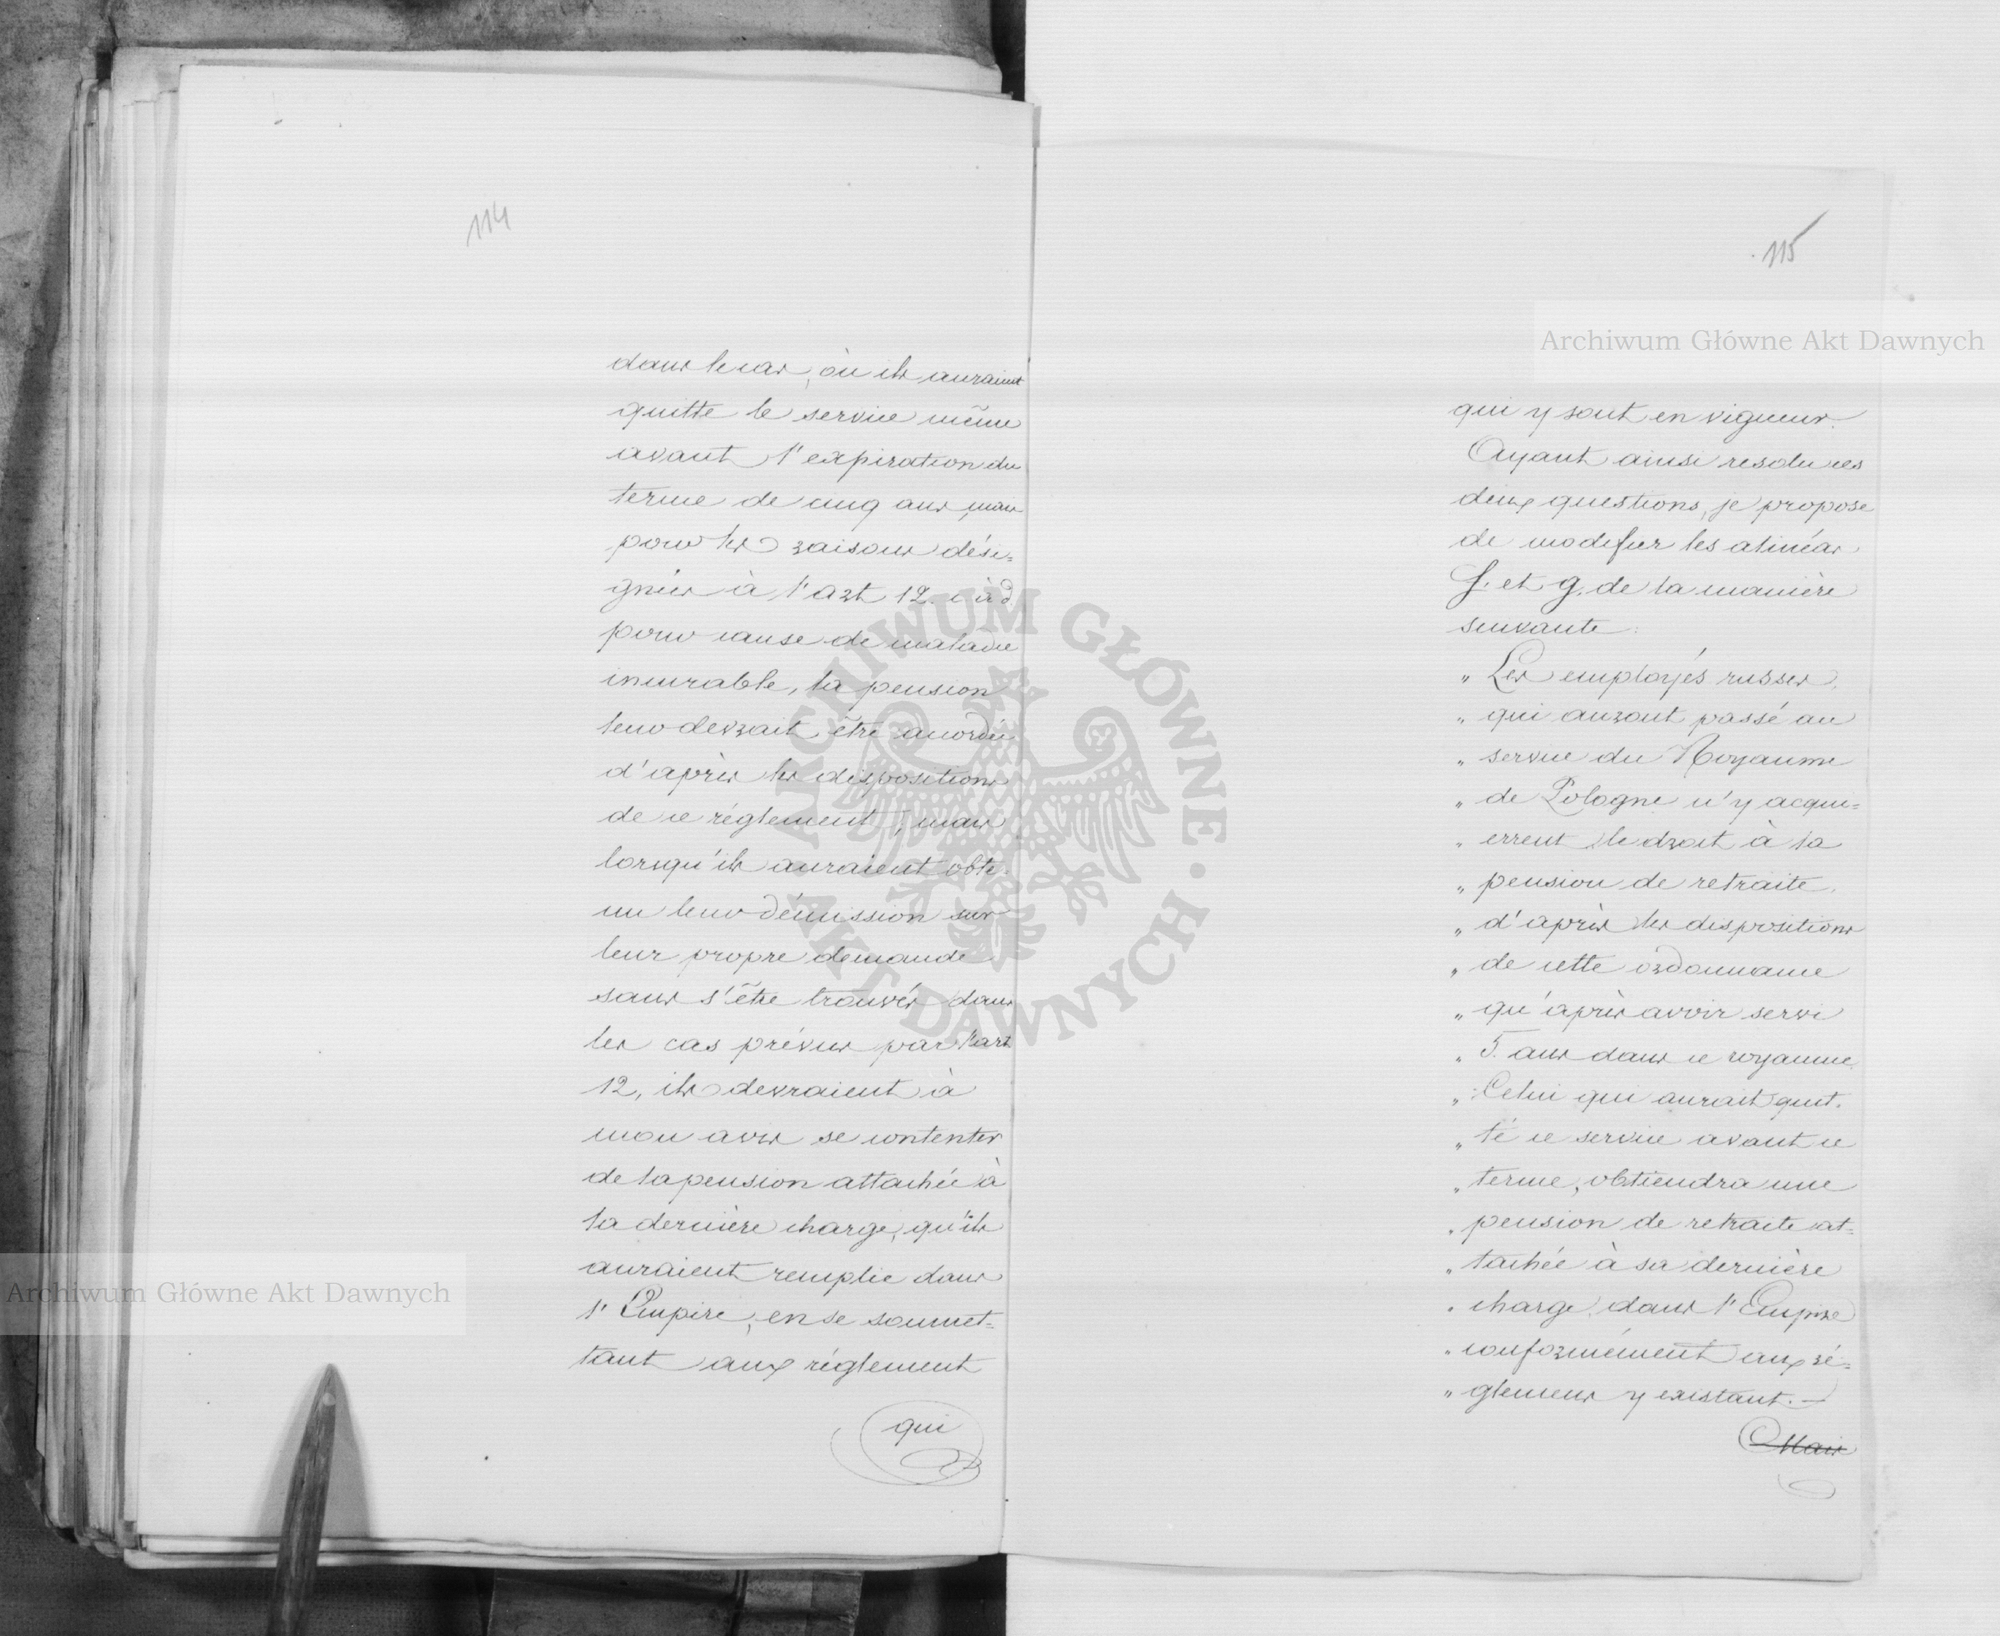 114
dans le cas, où ils auraient
quitté le service même
avant l'expiration du
terme de cinq ans, mais
pour les raisons dési=
gnées à l'art 12. c à d
pour cause de maladie
incurable, la pension
leur devrait être accordée
d'après les dispositions
de ce réglement; mais
lorsqu'ils auraient obte=
nu leur démission sur
leur propre demande
sans s'être trouvés dans
les cas prévus par l'art
12, ils devraient à
mon avis se contenter
de la pension attachée à
la dernière charge, qu'ils
auraient remplie dans
l'Empire, en se soumet=
tant aux réglement
qui
115
qui y sont en vigueur.
Ayant ainsi resolu ces
deux questions, je propose
de modifier les alinéas
f. et g. de la manière
suivante:
" Les employés russes,
" qui auront passé au
" service du Royaume
" de Pologne n'y acqui=
" errent le droit à la
" pension de retraite,
" d'après les dispositions
" de cette ordonnance
" qu'après avoir servi
" 5. ans dans ce royaume.
" Celui qui aurait quit=
" té ce service avant ce
" terme, obtiendra une
" pension de retraite at=
" tachée à sa dernière
" charge dans l'Empire
" conformément aux ré=
" glemens y existant. —
Mais
Archiwum Główne Akt Dawnych
Archiwum Główne Akt Dawnych
ARCHIWUM GŁÓWNE · AKT DAWNYCH ·